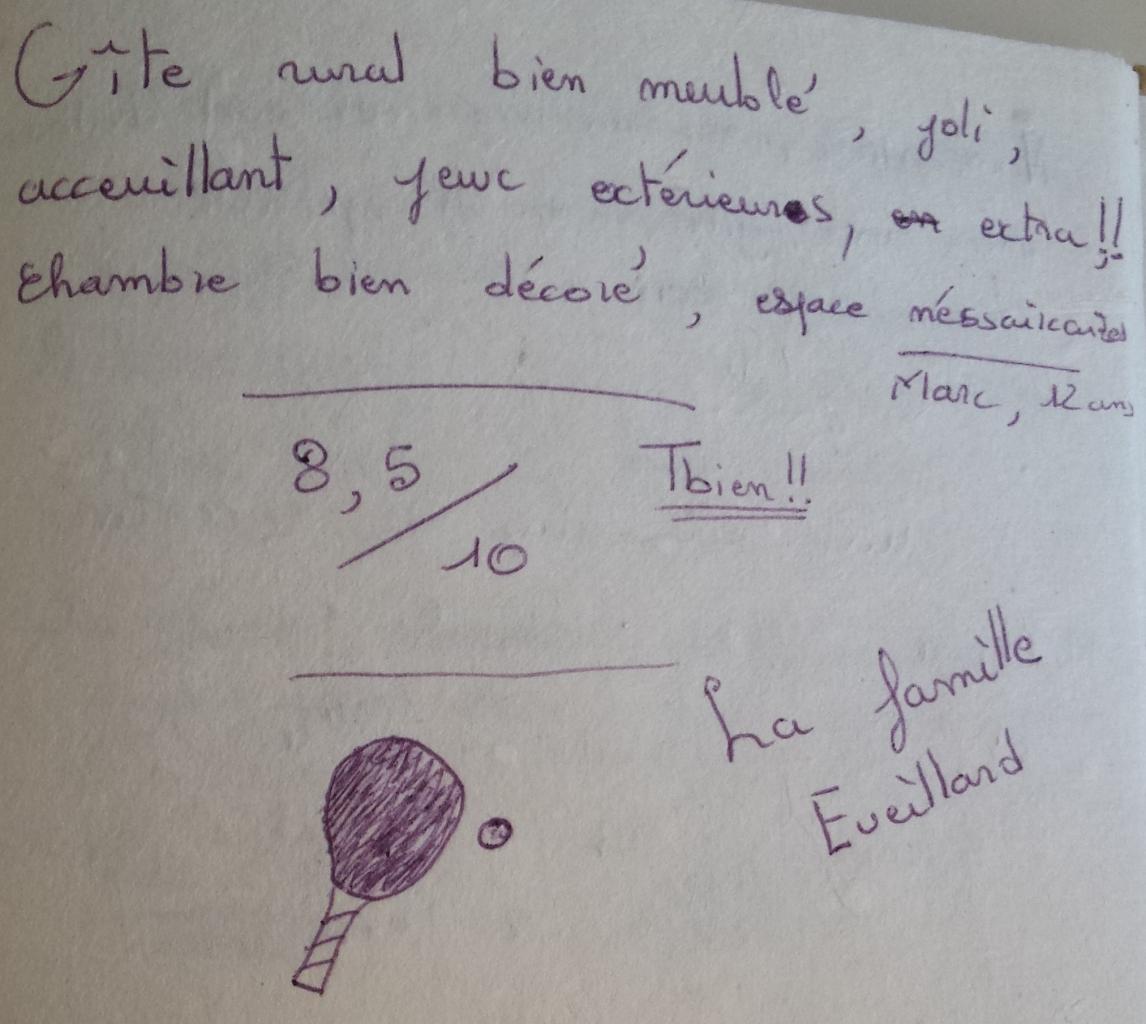 Gîte rural bien meublé, joli,
acceuillant, jeux extérieurs, extra!!
Chambre bien décoré, espace
Marc, 12 ans
8,5/10
Tbien!!
La famille
Eveillard